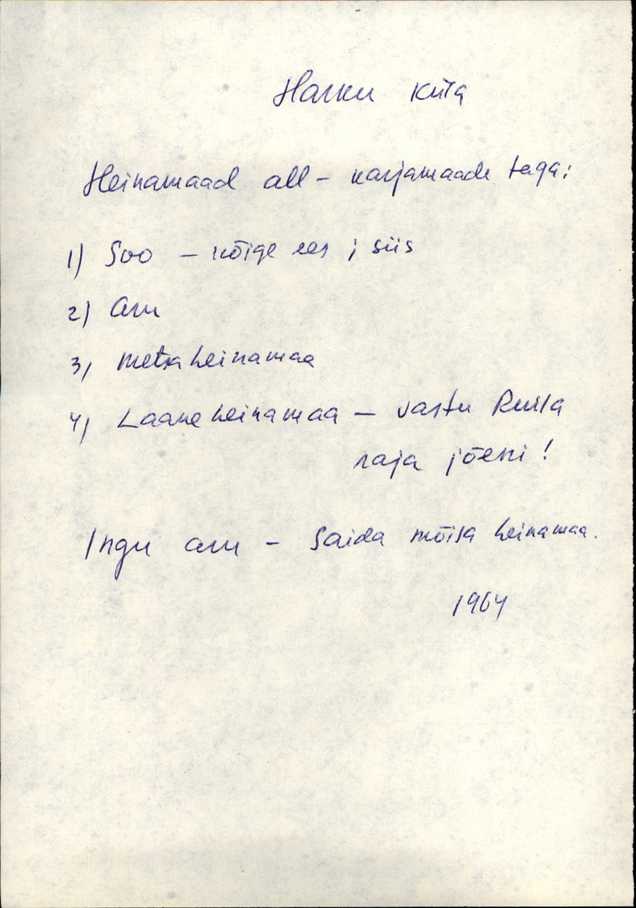 Harku küla
Heinamaad all – karjamaade taga:
1) Soo – kõige ees ; siis
2) Aru
3) metsaheinamaa
4) Laane heinamaa – vastu Ruila
raja jõeni !
Ingu aru – Saida mõisa heinamaa.
1964